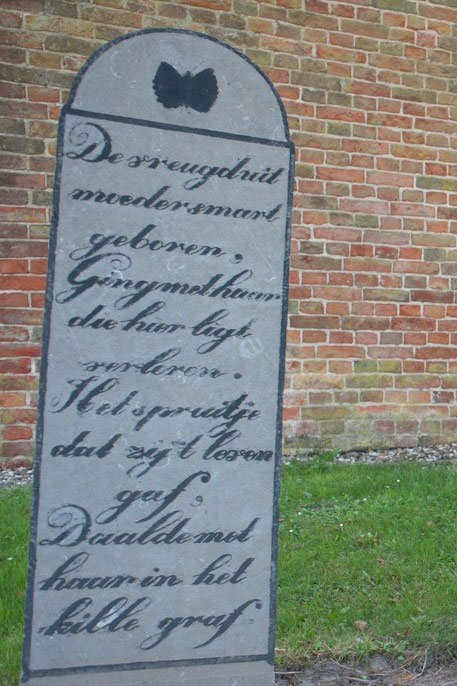 De vreugd uit
moedersmart
geboren,
Ging met haar
die hier ligt
verloren.
Het spruitje
dat zij 't leven
gaf,
Daalde met
haar in het
kille graf.